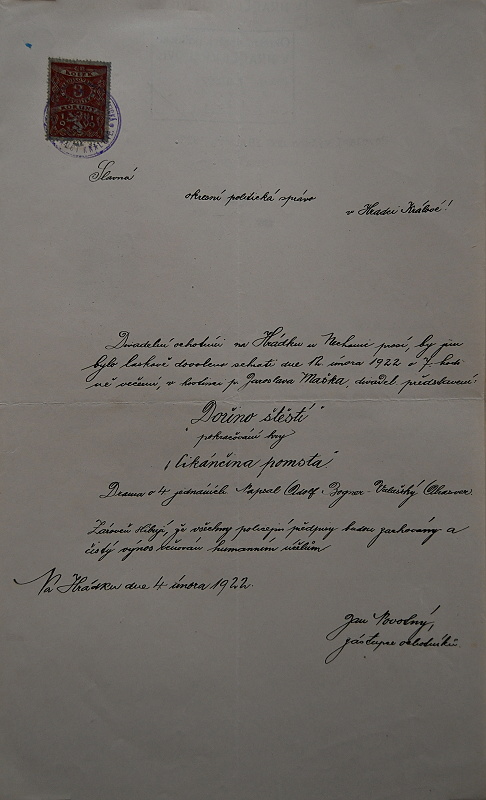 KOLEK
3
KORUNY
Slavná
okresní politická správo
v Hradci Králové!
Divadelní ochotníci na Hrádku u Nechanic prosí, by jim
bylo laskavě dovoleno sehrati dne 12. února 1922 o 7 hodi
ně večerní, v hostinci p. Jaroslava Maška, divadel. představení:
"Dořino štěstí"
pokračování hry
"Cikánčina pomsta"
Drama o 4 jednáních. Napsal Adolf Valašský
Zároveň slibují, že všechny policejní předpisy budou zachovány a
čistý výnos věnován humanním účelům
Na Hrádku dne 4. února 1922.
Jan Novotný,
zástupce ochotníků.